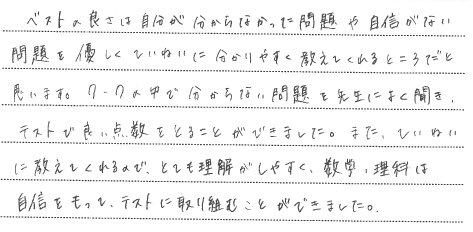 ベストの良さは自分が分からなかった問題や自信がない
問題を優しくていねいに分かりやすく教えてくれるところだと
思います。ワークの中で分からない問題を先生によく聞き、
テストで良い点数をとることができました。また、ていねい
に教えてくれるので、とても理解がしやすく、数学、理科は
自信をもって、テストに取り組むことができました。